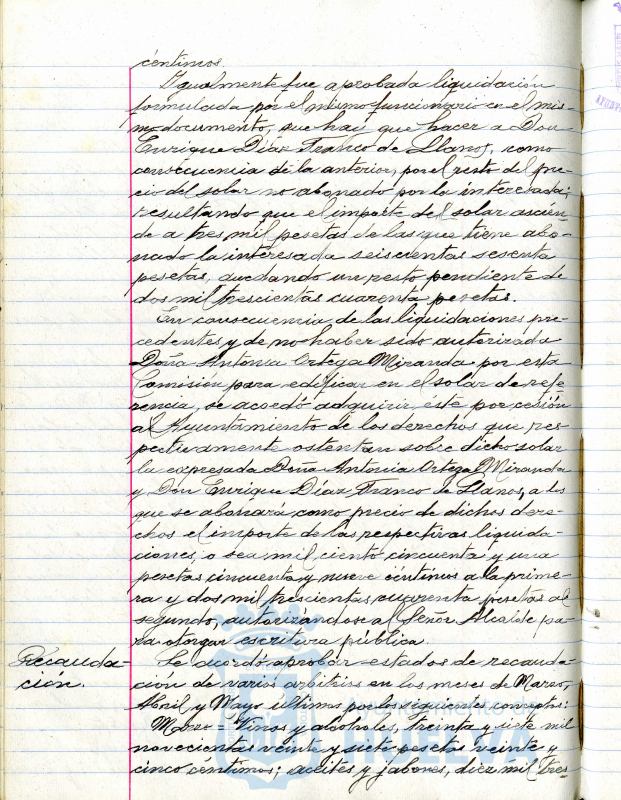 céntimos.
Igualmente fue aprobada liquidación
formulada por el mismo funcionario en el mis-
mo documento, que hay que hacer a Don
Enrique Díaz Franco de Llanos, como
consecuencia de la anterior, por el resto del pre-
cio del solar no abonado por la interesada;
resultando que el importe del solar ascien-
de a tres mil pesetas de las que tiene abo-
nado la interesada seiscientas sesenta
pesetas, quedando un resto pendiente de
dos mil trescientas cuarenta pesetas.
En consecuencia de las liquidaciones pre-
cedentes y de no haber sido autorizada
Doña Antonia Ortega Miranda por esta
Comisión para edificar en el solar de refe-
rencia, se acordó adquirir este por cesión
al Ayuntamiento de los derechos que res-
pectivamente ostentan sobre dicho solar
la expresada Doña Antonia Ortega Miranda
y Don Enrique Díaz Franco de Llanos, a los
que se abonará como precio de dichos dere-
chos el importe de las respectivas liquida-
ciones, o sea, mil ciento cincuenta y una
pesetas cincuenta y nueve céntimos a la prime-
ra y dos mil trescientas cuarenta pesetas al
segundo, autorizándose al Señor Alcalde pa-
ra otorgar escritura pública.
Recauda-
ción.
Se acordó aprobar estados de recauda-
ción de varios arbitrios en los meses de Marzo,
Abril y Mayo último por los siguientes conceptos:
Marzo = Vinos y alcoholes, treinta y siete mil
novecientas veinte y siete pesetas veinte y
cinco céntimos; aceites y jabones, diez mil tres-